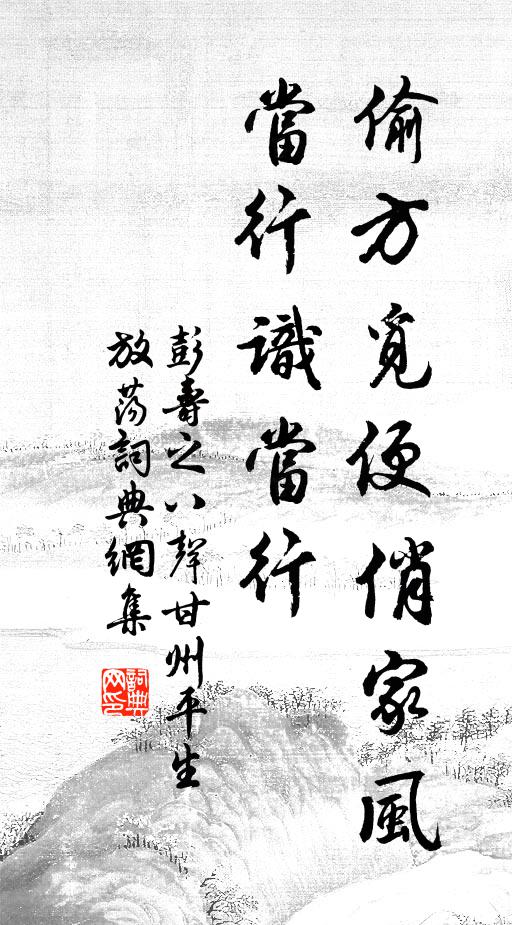 偷方覓便俏家風
當行識當行
彭壽之八聲甘州平生
放蕩詞典網集
詞典网印